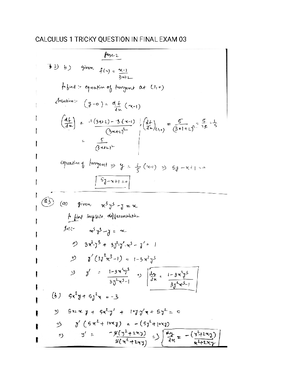 CALCULUS 1 TRICKY QUESTION IN FINAL EXAM 03
Q.3) b) given f(x) = x-1/3x+2
A find :- equation of tangent at (1,0)
Solution:- (y-0) = dy/dx (x-1)
(dy/dx) = 1(3x+2) - 3(x-1)/(3x+2)² ; (dy/dx)(1,0) = 5/(3×1+2)² = 5/
= 5/(3x+2)²
equation of tangent ⇒ y = 1/5 (x-1) ⇒ 5y-x+1=0
5y-x+1=0
Q.3 (a) given x³y³-y=x
A find implicit differentiation
Sol:- x³y³-y = x
⇒ 3x²y³ + 3y²y'x³ - y' = 1
⇒ y'(3y²x³-1) = 1-3x²y³
⇒ y' = 1-3x²y³/3y²x³-1 ⇒ dy/dx = 1-3x²y³/3y²x³-1
(b) 5x²y + 5y²x = -3
⇒ 5×2xy + 5x²y' + 10y.y'x + 5y² = 0
⇒ y'(5x²+10xy) = -(5y²+10xy)
⇒ y' = -5(y²+2xy)/5(x²+2xy) ⇒ dy/dx = -(y²+2xy)/x²+2xy